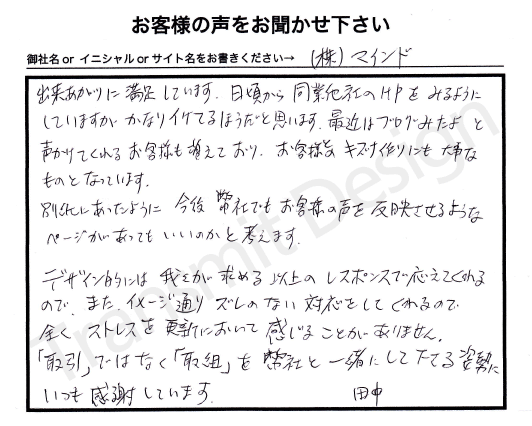 お客様の声をお聞かせ下さい
御社名 or イニシャル or サイト名をお書きください→ (株)マインド
出来あがりに満足しています。日頃から同業他社のHPをみるように
していますが かなりイケてるほうだと思います。最近はブログみたよ と
声かけてくれるお客様も増えており、お客様との キズナ作りにも 大事な
ものとなっています。
別紙にあったように 今後 弊社でもお客様の声を反映させるような
ページがあってもいいのかと考えます。
デザイン的には 我々が求める以上のレスポンスで応えてくれる
ので、また、イメージ通り ズレのない対応をしてくれるので
全く ストレスを更新において 感じることがありません。
「取引」ではなく「取組」を 弊社と一緒にして下さる姿勢に
いつも感謝しています。 田中
Transmit Design